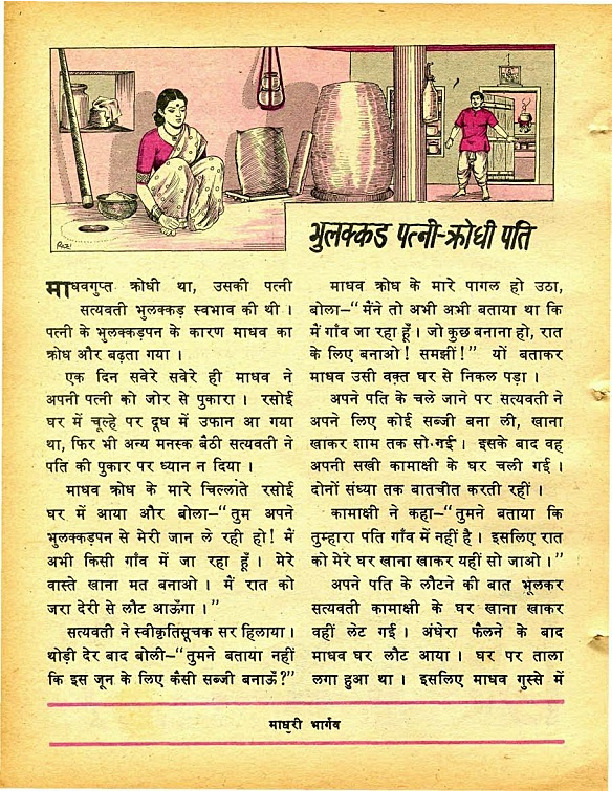 भुलक्कड पत्नी-क्रोधी पति
माधवगुप्त क्रोधी था, उसकी पत्नी
सत्यवती भुलक्कड़ स्वभाव की थी ।
पत्नी के भुलक्कड़पन के कारण माधव का
क्रोध और बढ़ता गया ।
एक दिन सवेरे सवेरे ही माधव ने
अपनी पत्नी को जोर से पुकारा । रसोई
घर में चूल्हे पर दूध में उफान आ गया
था, फिर भी अन्य मनस्क बैठी सत्यवती ने
पति की पुकार पर ध्यान न दिया ।
माधव क्रोध के मारे चिल्लाते रसोई
घर में आया और बोला–“तुम अपने
भुलक्कड़पन से मेरी जान ले रही हो! मैं
अभी किसी गाँव में जा रहा हूँ । मेरे
वास्ते खाना मत बनाओ । मैं रात को
जरा देरी से लौट आऊँगा ।”
सत्यवती ने स्वीकृतिसूचक सर हिलाया ।
थोड़ी देर बाद बोली–“तुमने बताया नहीं
कि इस जून के लिए कैसी सब्जी बनाऊँ?”
माधव क्रोध के मारे पागल हो उठा,
बोला–“मैंने तो अभी अभी बताया था कि
मैं गाँव जा रहा हूँ । जो कुछ बनाना हो, रात
के लिए बनाओ! समझीं!” यों बताकर
माधव उसी वक़्त घर से निकल पड़ा ।
अपने पति के चले जाने पर सत्यवती ने
अपने लिए कोई सब्जी बना ली, खाना
खाकर शाम तक सो गई । इसके बाद वह
अपनी सखी कामाक्षी के घर चली गई ।
दोनों संध्या तक बातचीत करती रहीं ।
कामाक्षी ने कहा–“तुमने बताया कि
तुम्हारा पति गाँव में नहीं है । इसलिए रात
को मेरे घर खाना खाकर यहीं सो जाओ ।”
अपने पति के लौटने की बात भूलकर
सत्यवती कामाक्षी के घर खाना खाकर
वहीं लेट गई । अंधेरा फैलने के बाद
माधव घर लौट आया । घर पर ताला
लगा हुआ था । इसलिए माधव गुस्से में
माधुरी भार्गव